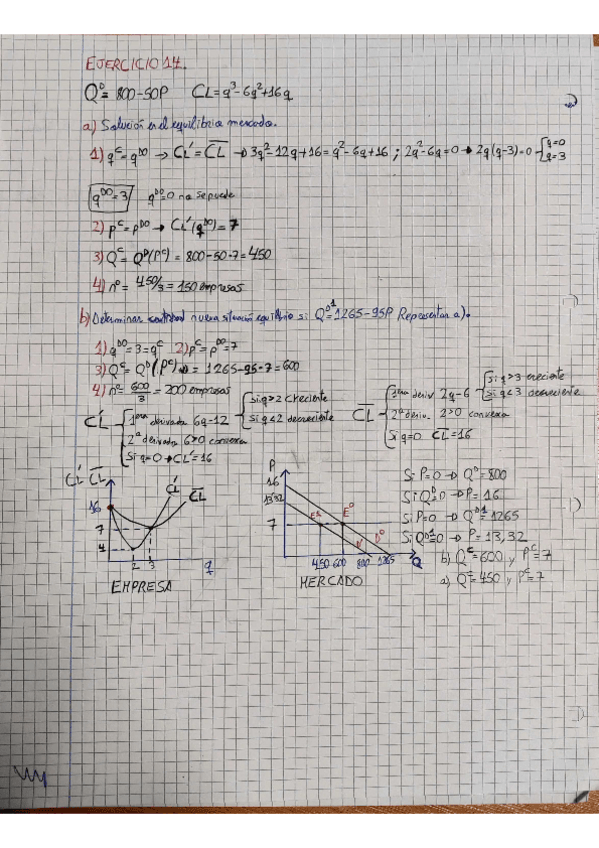 EJERCICIO 14.
Q^D = 800-50P   CL = q³-6q²+16q
a) Solución en el equilibrio mercado.
1) q^C = q^DO → CL' = C̅L̅ → 3q²-12q+16 = q²-6q+16 ; 2q²-6q=0 → 2q(q-3)=0 { q=0
q=3
q^DO = 3   q^DO = 0 no se puede
2) p^C = p^DO → CL'(q^DO) = 7
3) Q^C = Q^D(P^C) = 800-50·7 = 450
4) nº = 450/3 = 150 empresas
b) Determinar nueva situación equilibrio si Q^D1 = 1265-95P Representar a).
1) q^DO = 3 = q^C   2) p^C = p^DO = 7
3) Q^C = Q^D(P^C) = 1265-95·7 = 600
4) nº = 600/3 = 200 empresas
CL' { 1era derivada 6q-12 { Si q>2 creciente
Si q<2 decreciente
2ª derivada 6>0 convexa
Si q=0 → CL' = 16
C̅L̅ { 1era deriv 2q-6 { Si q>3 creciente
Si q<3 decreciente
2ª deriv. 2>0 convexa
Si q=0 C̅L̅ = 16
CL' C̅L̅
16
7
4
2 3 q
CL'
C̅L̅
EMPRESA
P
16
13,32
7
E^D
D^D
450 600 800 1265 Q
MERCADO
Si P=0 → Q^D = 800
Si Q^D=0 → P = 16
Si P=0 → Q^D1 = 1265
Si Q^D1=0 → P = 13,32
b) Q^C = 600 y P^C = 7
a) Q^C = 450 y P^C = 7